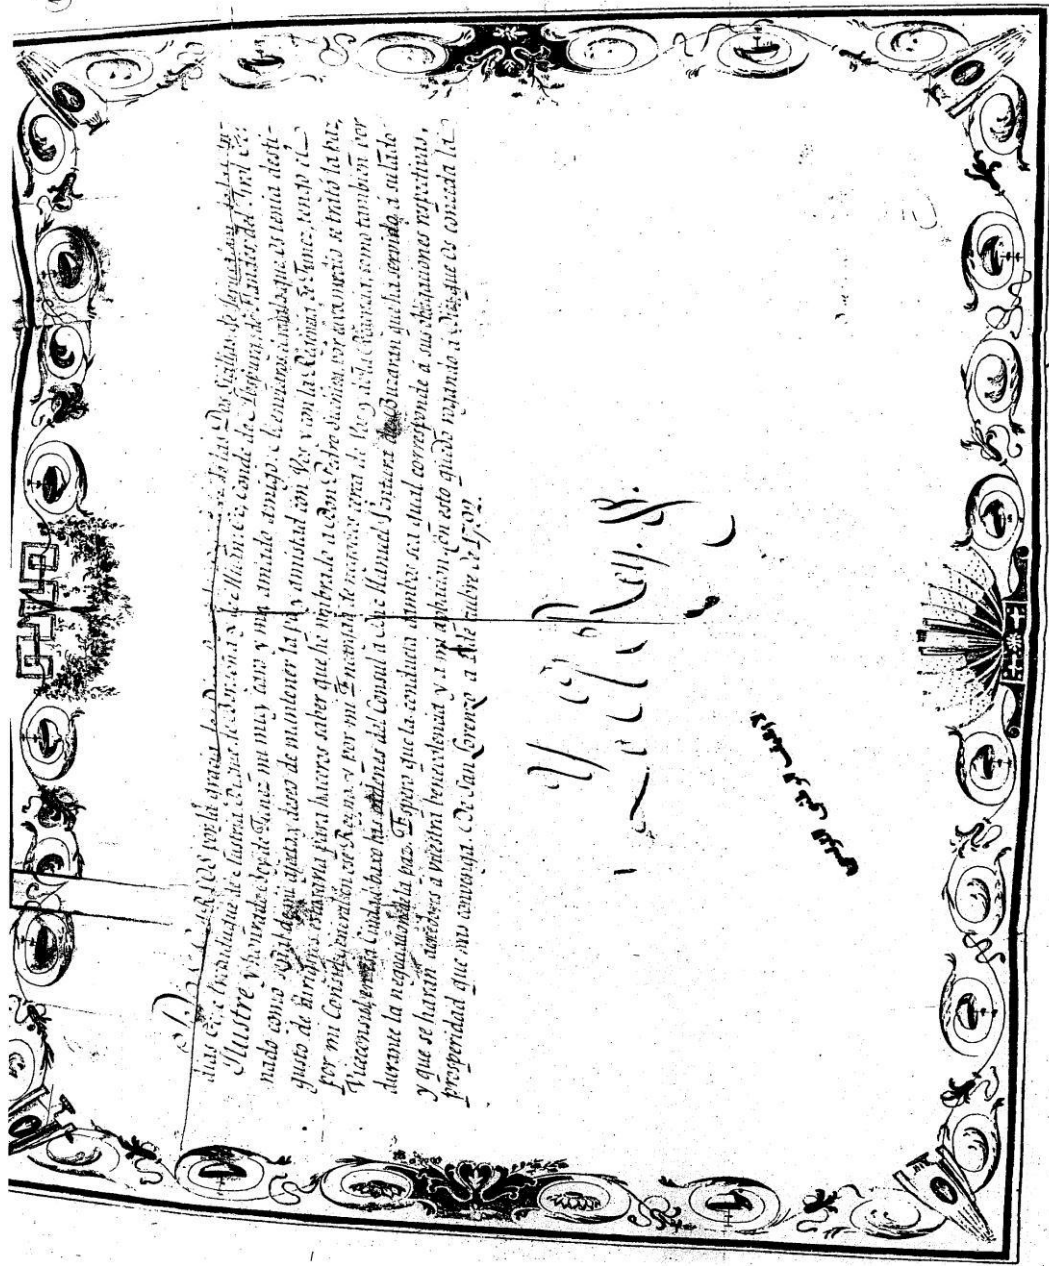 CARLOS por la gracia de Dios de las Dos Sicilias, de Jerusalen, de las In-
dias &.ª Archiduque de Austria, Duque de Borgoña y de Milan &.ª Conde de Abspurg, de Flandes, del Tirol &.ª
Ilustre y honrado Bey de Tunez mi muy caro y mui amado amigo. El enviaros ahora que os tenia desti-
nado como señal de mi apego y deseo de mantener la paz y amistad con Vos y con la Regencia de Tunez, tengo el
gusto de para haceros saber que he nombrado a Don Pedro Suchita por cuyo medio se trató la paz,
por mi Consul general en ese Reyno, y por mi Encargado de negocios cerca de Vos y de la Regencia; como tambien por
Viceconsul en esa Ciudad baxo las ordenes del Consul á Dn. Manuel Ventura de Buzaran que ha servido á su lado
durante la negociacion de la paz. Espero que la conducta de ambos sea qual corresponde á sus obligaciones respectivas,
y que se harán acreedores á vuestra benevolencia y a mi aprobacion. Con esto quedo rogando á Dios que os conceda la
prosperidad que mas convenga. De San Lorenzo a de Octubre de 1792.
Yo El Rey.